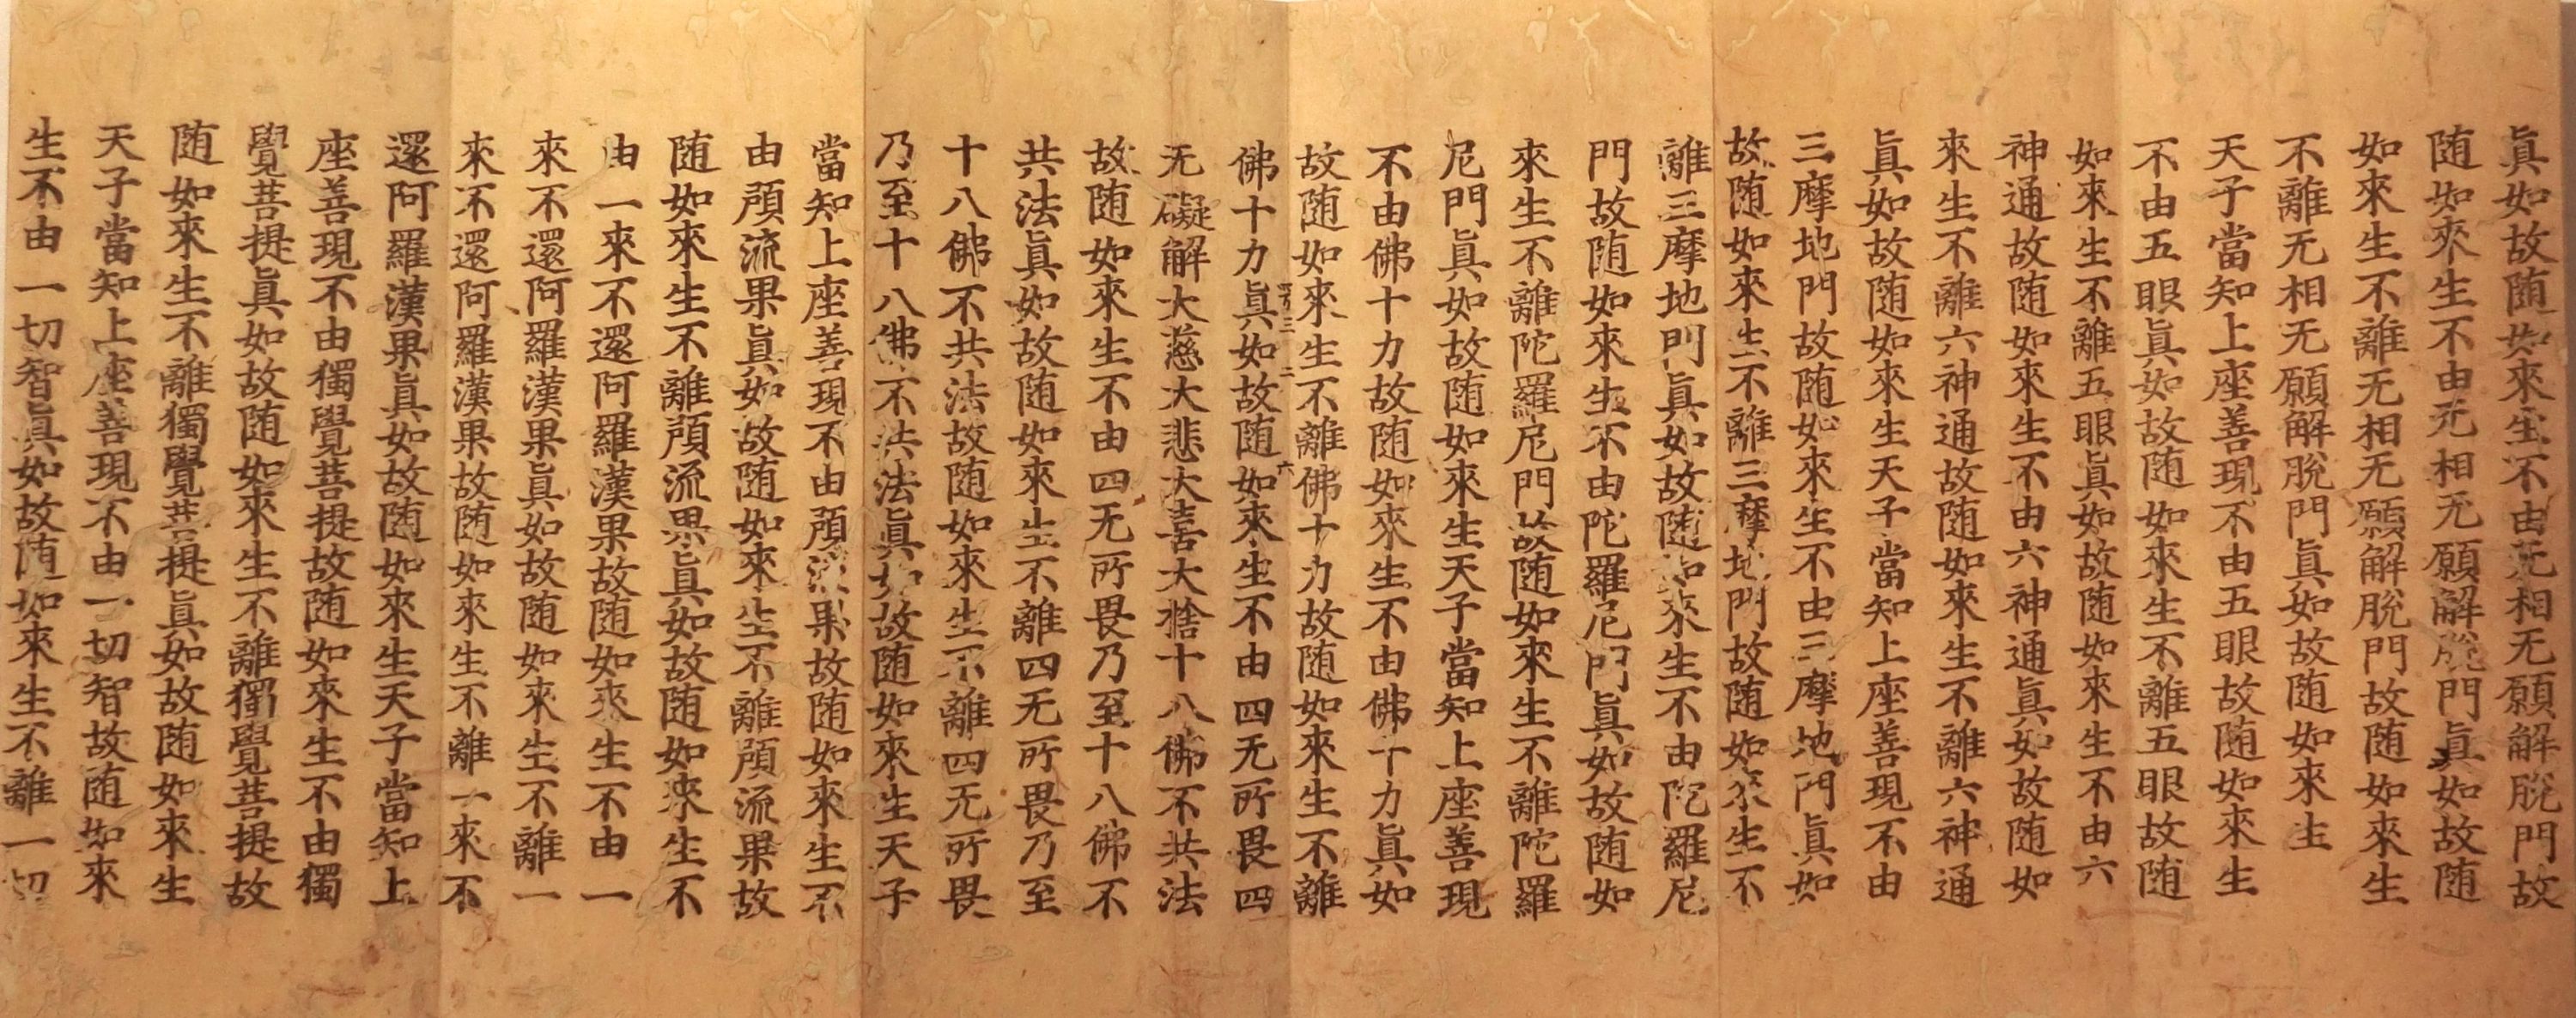 眞如故随如來生不由无相无願解脫門故
随如來生不由无相无願解脫門眞如故随
如來生不離无相无願解脫門故随如來生
不離无相无願解脫門眞如故随如來生
天子當知上座善現不由五眼故随如來生
不由五眼眞如故随如來生不離五眼故随
如來生不離五眼眞如故随如來生不由六
神通故随如來生不由六神通眞如故随如
來生不離六神通故随如來生不離六神通
眞如故随如來生天子當知上座善現不由
三摩地門故随如來生不由三摩地門眞如
故随如來生不離三摩地門故随如來生不
離三摩地門眞如故随如來生不由陀羅尼
門故随如來生不由陀羅尼門眞如故随如
來生不離陀羅尼門故随如來生不離陀羅
尼門眞如故随如來生天子當知上座善現
不由佛十力故随如來生不由佛十力眞如
故随如來生不離佛十力故随如來生不離
二 六
佛十力眞如故随如來生不由四无所畏四
无礙解大慈大悲大喜大捨十八佛不共法
故随如來生不由四无所畏乃至十八佛不
共法眞如故随如來生不離四无所畏乃至
十八佛不共法故随如來生不離四无所畏
乃至十八佛不共法眞如故随如來生天子
當知上座善現不由預流果故随如來生不
由預流果眞如故随如來生不離預流果故
随如來生不離預流果眞如故随如來生不
由一來不還阿羅漢果故随如來生不由一
來不還阿羅漢果眞如故随如來生不離一
來不還阿羅漢果故随如來生不離一來不
還阿羅漢果眞如故随如來生天子當知上
座善現不由獨覺菩提故随如來生不由獨
覺菩提眞如故随如來生不離獨覺菩提故
随如來生不離獨覺菩提眞如故随如來生
天子當知上座善現不由一切智故随如來
生不由一切智眞如故随如來生不離一切